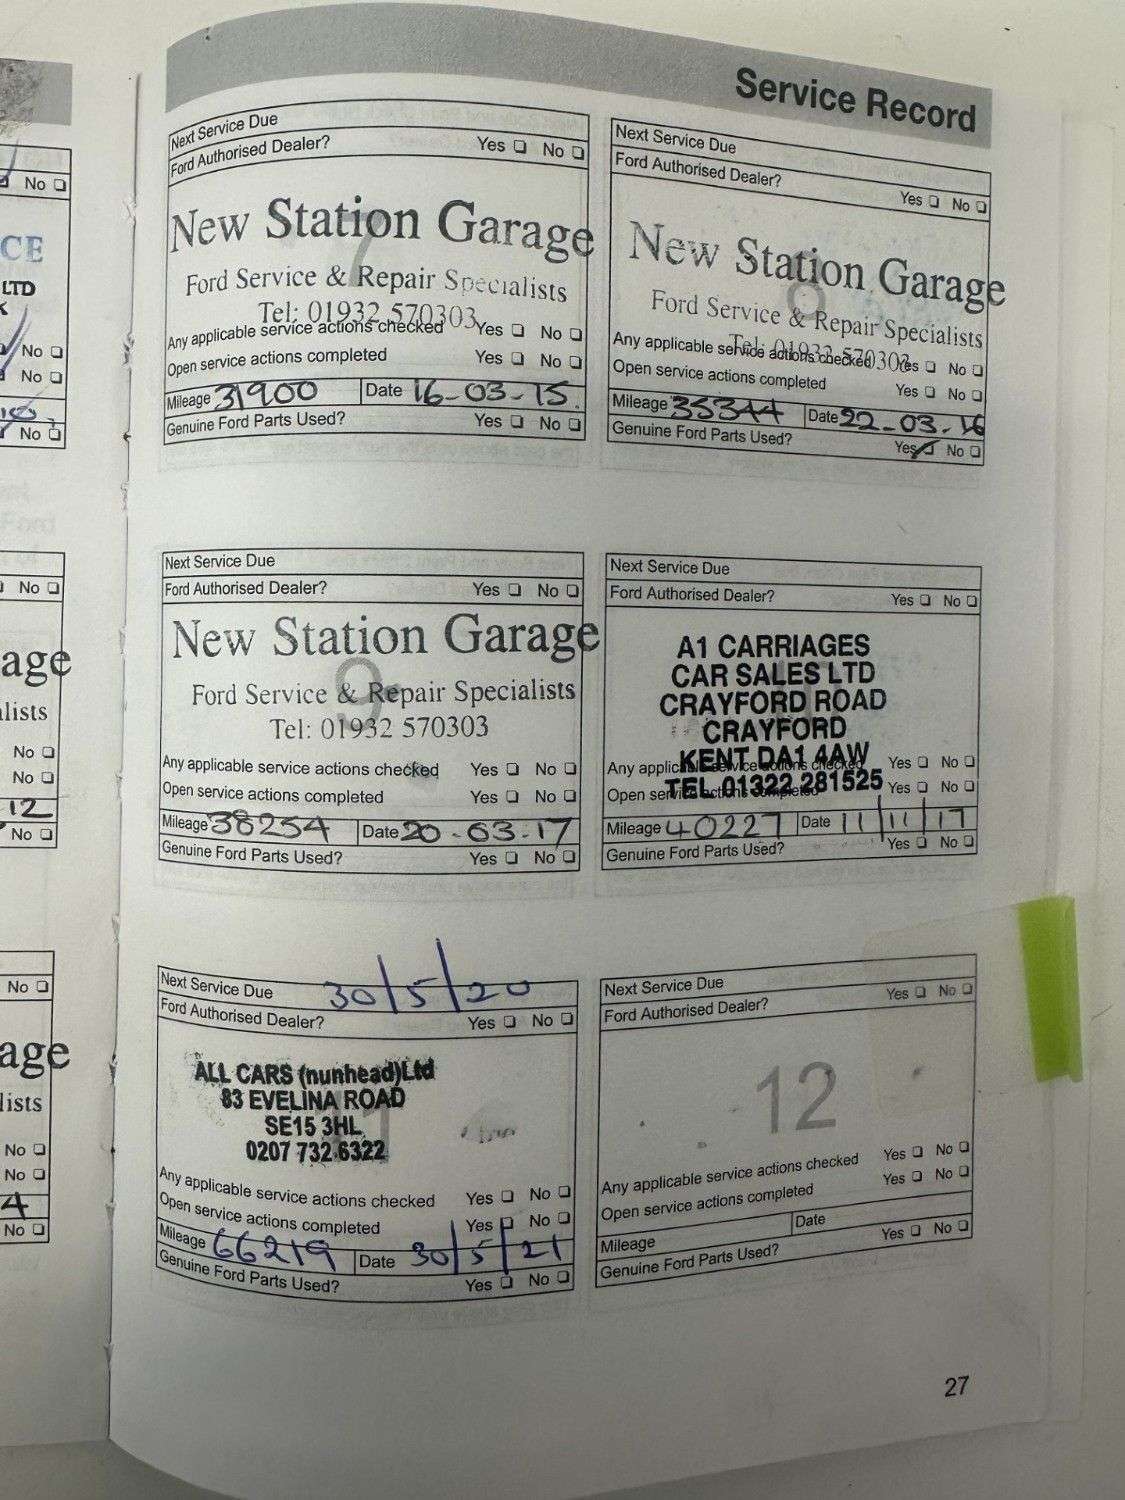 Service Record
No
CE
LTD
K
No
No
No
No
age
lists
No
No
12
No
No
age
lists
No
No
4
No
Next Service Due
Ford Authorised Dealer? Yes No
7
New Station Garage
Ford Service & Repair Specialists
Tel: 01932 570303
Any applicable service actions checked Yes No
Open service actions completed Yes No
Mileage 31900 Date 16-03-15.
Genuine Ford Parts Used? Yes No
Next Service Due
Ford Authorised Dealer? Yes No
8
New Station Garage
Ford Service & Repair Specialists
Tel: 01932 570303
Any applicable service actions checked Yes No
Open service actions completed Yes No
Mileage 35344 Date 22-03-16
Genuine Ford Parts Used? Yes No
Next Service Due
Ford Authorised Dealer? Yes No
9
New Station Garage
Ford Service & Repair Specialists
Tel: 01932 570303
Any applicable service actions checked Yes No
Open service actions completed Yes No
Mileage 38254 Date 20-03-17
Genuine Ford Parts Used? Yes No
Next Service Due
Ford Authorised Dealer? Yes No
A1 CARRIAGES
CAR SALES LTD
CRAYFORD ROAD
CRAYFORD
KENT DA1 4AW
TEL 01322 281525
Any applicable service actions checked Yes No
Open service actions completed Yes No
Mileage 40227 Date 11/11/17
Genuine Ford Parts Used? Yes No
Next Service Due 30/5/20
Ford Authorised Dealer? Yes No
11
ALL CARS (nunhead) Ltd
83 EVELINA ROAD
SE15 3HL
0207 732 6322
Any applicable service actions checked Yes No
Open service actions completed Yes No
Mileage 66219 Date 30/5/21
Genuine Ford Parts Used? Yes No
Next Service Due
Ford Authorised Dealer? Yes No
12
Any applicable service actions checked Yes No
Open service actions completed Yes No
Mileage Date
Genuine Ford Parts Used? Yes No
27